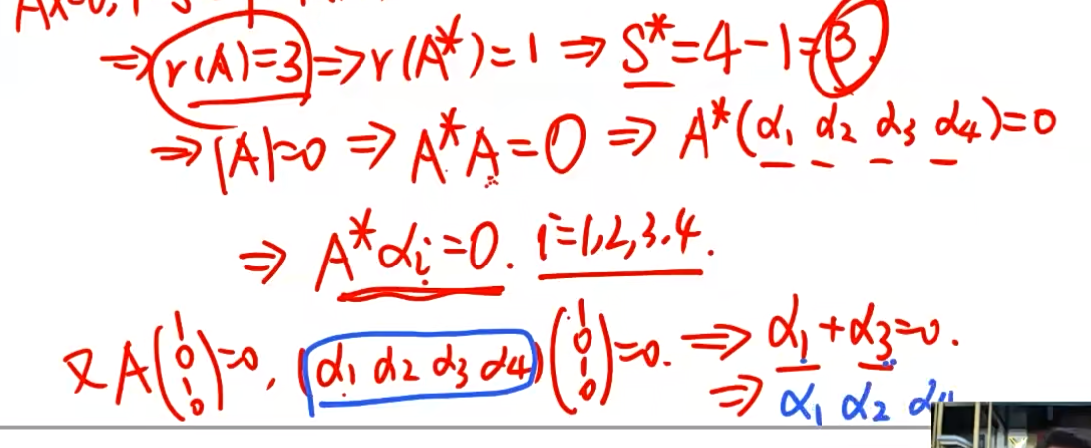 Ax=0,
⇒ r(A)=3 ⇒ r(A*)=1 ⇒ S*=4-1=3
⇒ |A|=0 ⇒ A*A=0 ⇒ A*(α₁ α₂ α₃ α₄)=0
⇒ A*αᵢ=0. i=1,2,3,4.
又A(1 0 1 0)=0, (α₁ α₂ α₃ α₄)(1 0 1 0)=0. ⇒ α₁+α₃=0.
⇒ α₁ α₂ α₄